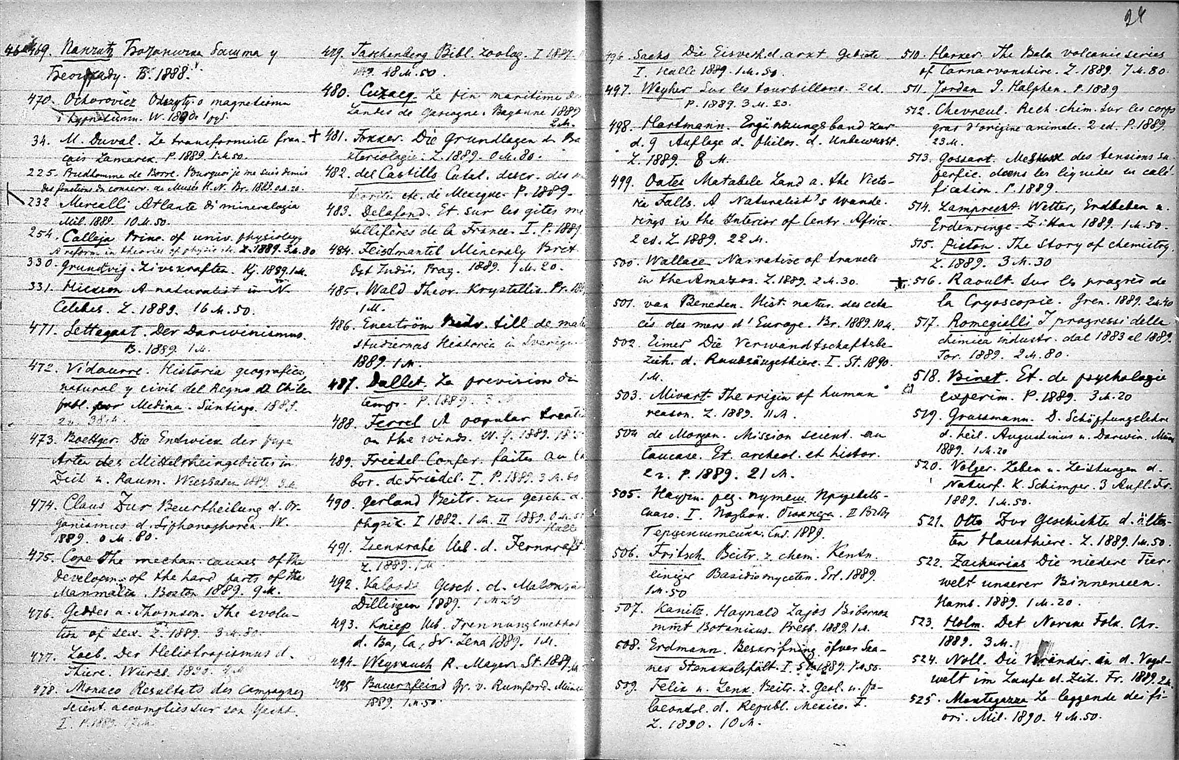 24
469. Панчић Ботаничка башта у
Београду. Б. 1888.
470. Ochorowicz Odczyty o magnetizmie
i hypnotizm. W. 1890
34. M. Duval. Le transformiste fran-
çais Lamarck. P. 1889. 1 M. 50.
225. Prudhomme de Borre. Pourquoi je me suis démis
des fonctions de conserv. au Musée H. N. Br. 1888.
232 Mercalli Atlante di mineralogia
Mil. 1888. 10 M. 50.
254. Calleja Princ. of univ. physiology
330. Grundtvig. Livskraften. Kj. 1889. 1 M.
331. Hickson A naturalist in N.
Celebes. L. 1889. 16 M. 50.
471. Lettgast. Der Darwinismus.
B. 1889. 1 M.
472. Vidaurre. Historia geografica
natural y civil del Regno de Chile
publ. por Medina. Santiago. 1889.
473. Boettger. Die Entwick. der
Arten des Mittelrheingebietes in
Zeit u. Raum. Wiesbaden 1889.
474. Claus Zur Beurtheilung d. Or-
ganismus d. Siphonophoren. W.
1889. 0 M. 80.
475. Cope The mechan. causes of the
developm. of the hard parts of the
Mammalia. Boston 1889. 9 M.
476. Geddes u. Thomson. The evolu-
tion of sex. L. 1889. 3 M. 80.
477. Loeb. Der Heliotropismus d.
Thiere. Würzb. 1889. 4 M.
478. Monaco Resultats des campagnes
scient. accomplies sur son Yacht.
I. P. 1889.
479. Taschenberg Bibl. zoolog. I 1887.
18 M. 50.
480. Cuzacq. Le pin maritime des
Landes de Gascogne. Bayonne 1889
2 M.
+ 481. Fokker. Die Grundlagen d. Ba-
kteriologie. L. 1889. 0 M. 80.
482. del Castillo Catal. descr. des
de Mexique. P. 1889.
483. Delafond. Et. sur les gites me-
tallifères de la France. I. P. 1889
484. Feistmantel Mineraly Brit.
Ost Indii. Prag. 1889. 1 M. 20.
485. Wald Theor. Krystallis. Pr.
1 M.
486. Eneström Bidr. till de mat
studiernas Historia i Sverige.
1889. 1 M.
487. Dallet. La prevision du
temps. P. 1889.
488. Ferrel A popular treati
on the winds. N. Y. 1889.
489. Friedel Confer. faites au la-
bor. de Friedel. I. P. 1889. 3 M. 80
490. Gerland Beitr. zur Gesch. d.
Physik. I 1882. 1 M. II 1889.
Halle
491. Isenkrahe Ueb. d. Fernkraft
L. 1889. 1 M.
492. Gesch. d.
Dillingen 1889.
493. Kniep Ueb. Trennungsmethod
d. Ba, Ca, Sr. Jena 1889. 1 M.
494. Weyrauch R. Mayer. St. 1889.
495 Bauernfeind Gr. v. Rumford. Münc
1889. 1 M. 50
496. Sachs Die Eisverhält. arkt. Gebiete
I. Halle 1889. 1 M. 50.
497. Weyher Sur les tourbillons. 2 ed.
P. 1889. 3 M. 50.
498. Hartmann. Ergänzungsband zur
d. 9 Auflage d. philos. d. Unbewusst.
L. 1889. 8 M.
499. Oates Matabele Land a. the Victo-
ria Falls. A Naturalist's wande-
rings in the Interior of Centr. Africa.
2 ed. L. 1889. 22 M.
500. Wallace Narrative of travels
in the Amazon. L. 1889. 2 M. 30.
501. van Beneden. Hist. natur. des ceta-
cés des mers d'Europe. Br. 1889. 10 M.
502. Eimer Die Verwandtschaftsbe-
zieh. d. Raubsäugethiere. I. St. 1890.
1 M.
503. Mivart The origin of human
reason. L. 1889. 11 M.
504 de Morgan. Mission scient. au
Caucase. Et. archéol. et histor.
2 v. P. 1889. 21 M.
505.
506. Fritsch Beitr. z. chem. Kentn.
einiger Basidiomyceten. Erl. 1889
1 M. 50
507. Kanitz. Haynald Lajos
mint Botanikus. Presb. 1889. 1 M.
508. Erdmann. Beskrifning öfver Ska-
nes Stenkolsfält. I. St. 1889. 1 M. 50.
509. Felix u. Lenk. Beitr. z. Geol. u. Pa-
laeontol. d. Republ. Mexico. I.
L. 1890. 10 M.
510. Harker. The Bala volcanic series
of Carnarvonshire. L. 1889 7 M. 80
511. Jordan G. Halphen. P. 1889
512. Chevreul. Rech. chim. sur les corps
gras d'origine animale. 2 ed. P. 1889.
23 M.
513. Gossart. des tensions su-
perfic. dans les liquides en caléf-
fication. P. 1889.
514. Lamprecht Wetter, Erdbeben u.
Erdenringe. Zittau 1889. 1 M. 50.
515. Picton. The story of chemistry.
L. 1889. 3 M. 30
+ 516. Raoult. Sur les progrès de
la Cryoscopie. Gren. 1889.
517. Romegialli I progressi della
chimica industr. dal 1883 al 1889.
Tor. 1889. 2 M. 80.
518. Binet. Et. de psychologie
experim. P. 1889. 3 M. 20
519. Grassmann. D. Schöpfungslehre
d. heil. Augustinus u. Darwin. Münc
1889. 1 M. 20
520. Volger. Leben u. Leistungen d.
Naturf. K. Schimper. 3 Aufl. Fr.
1889. 1 M. 50.
521. Otto Zur Geschichte d. älte-
ten Hausthiere. L. 1889. 1 M. 50.
522. Zacharias Die niedere Tier-
welt unserer Binnenseen.
Hamb. 1889. 1 M. 20.
523. Holm. Det Norske Folk. Chr.
1889. 3 M.
524. Noll. Die Veränder. in d. Vogel-
welt im Laufe d. Zeit. Fr. 1889.
525. Mantegazza Le leggende dei fi-
ori. Mil. 1890. 4 M. 50.